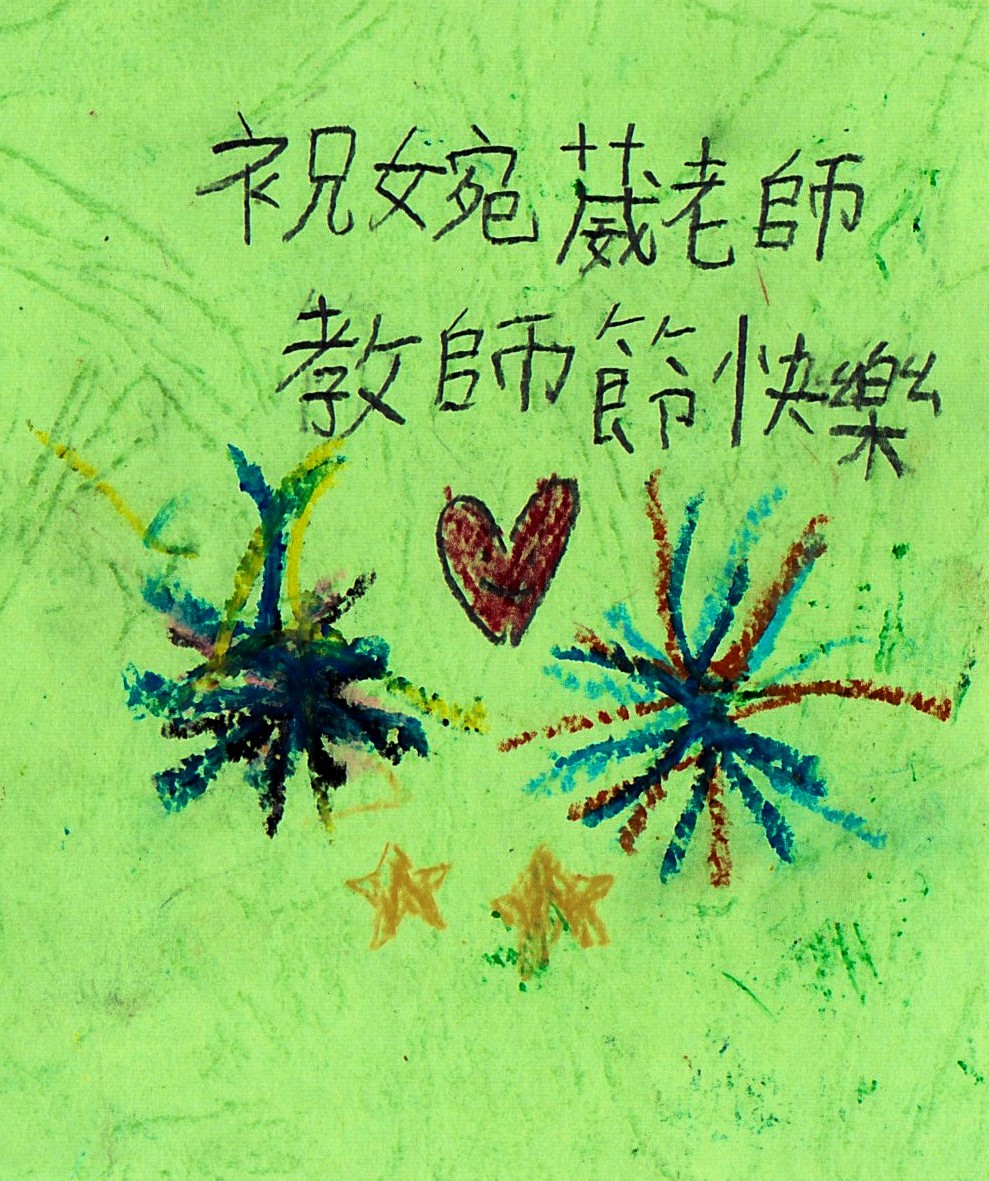 祝婉葳老師
教師節快樂